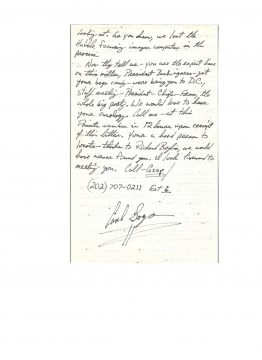 looking at. As you know, we lost the
Hubble focusing imager computer in the
process.
Now they tell me - you are the expert here
on this matter, President Techniques - get
your bags ready - were bring you to D.C.,
Staff meeting - President - Chiefs - the
whole big party. We would love to have
your Call me - at this
Private number in 72 hours upon receipt
of this letter. Your a hard person to
locate - thanks to Richard we would
have never found you. I look forward to
meeting you. Call - Asap!
(202) 707-0211 Ext 6.